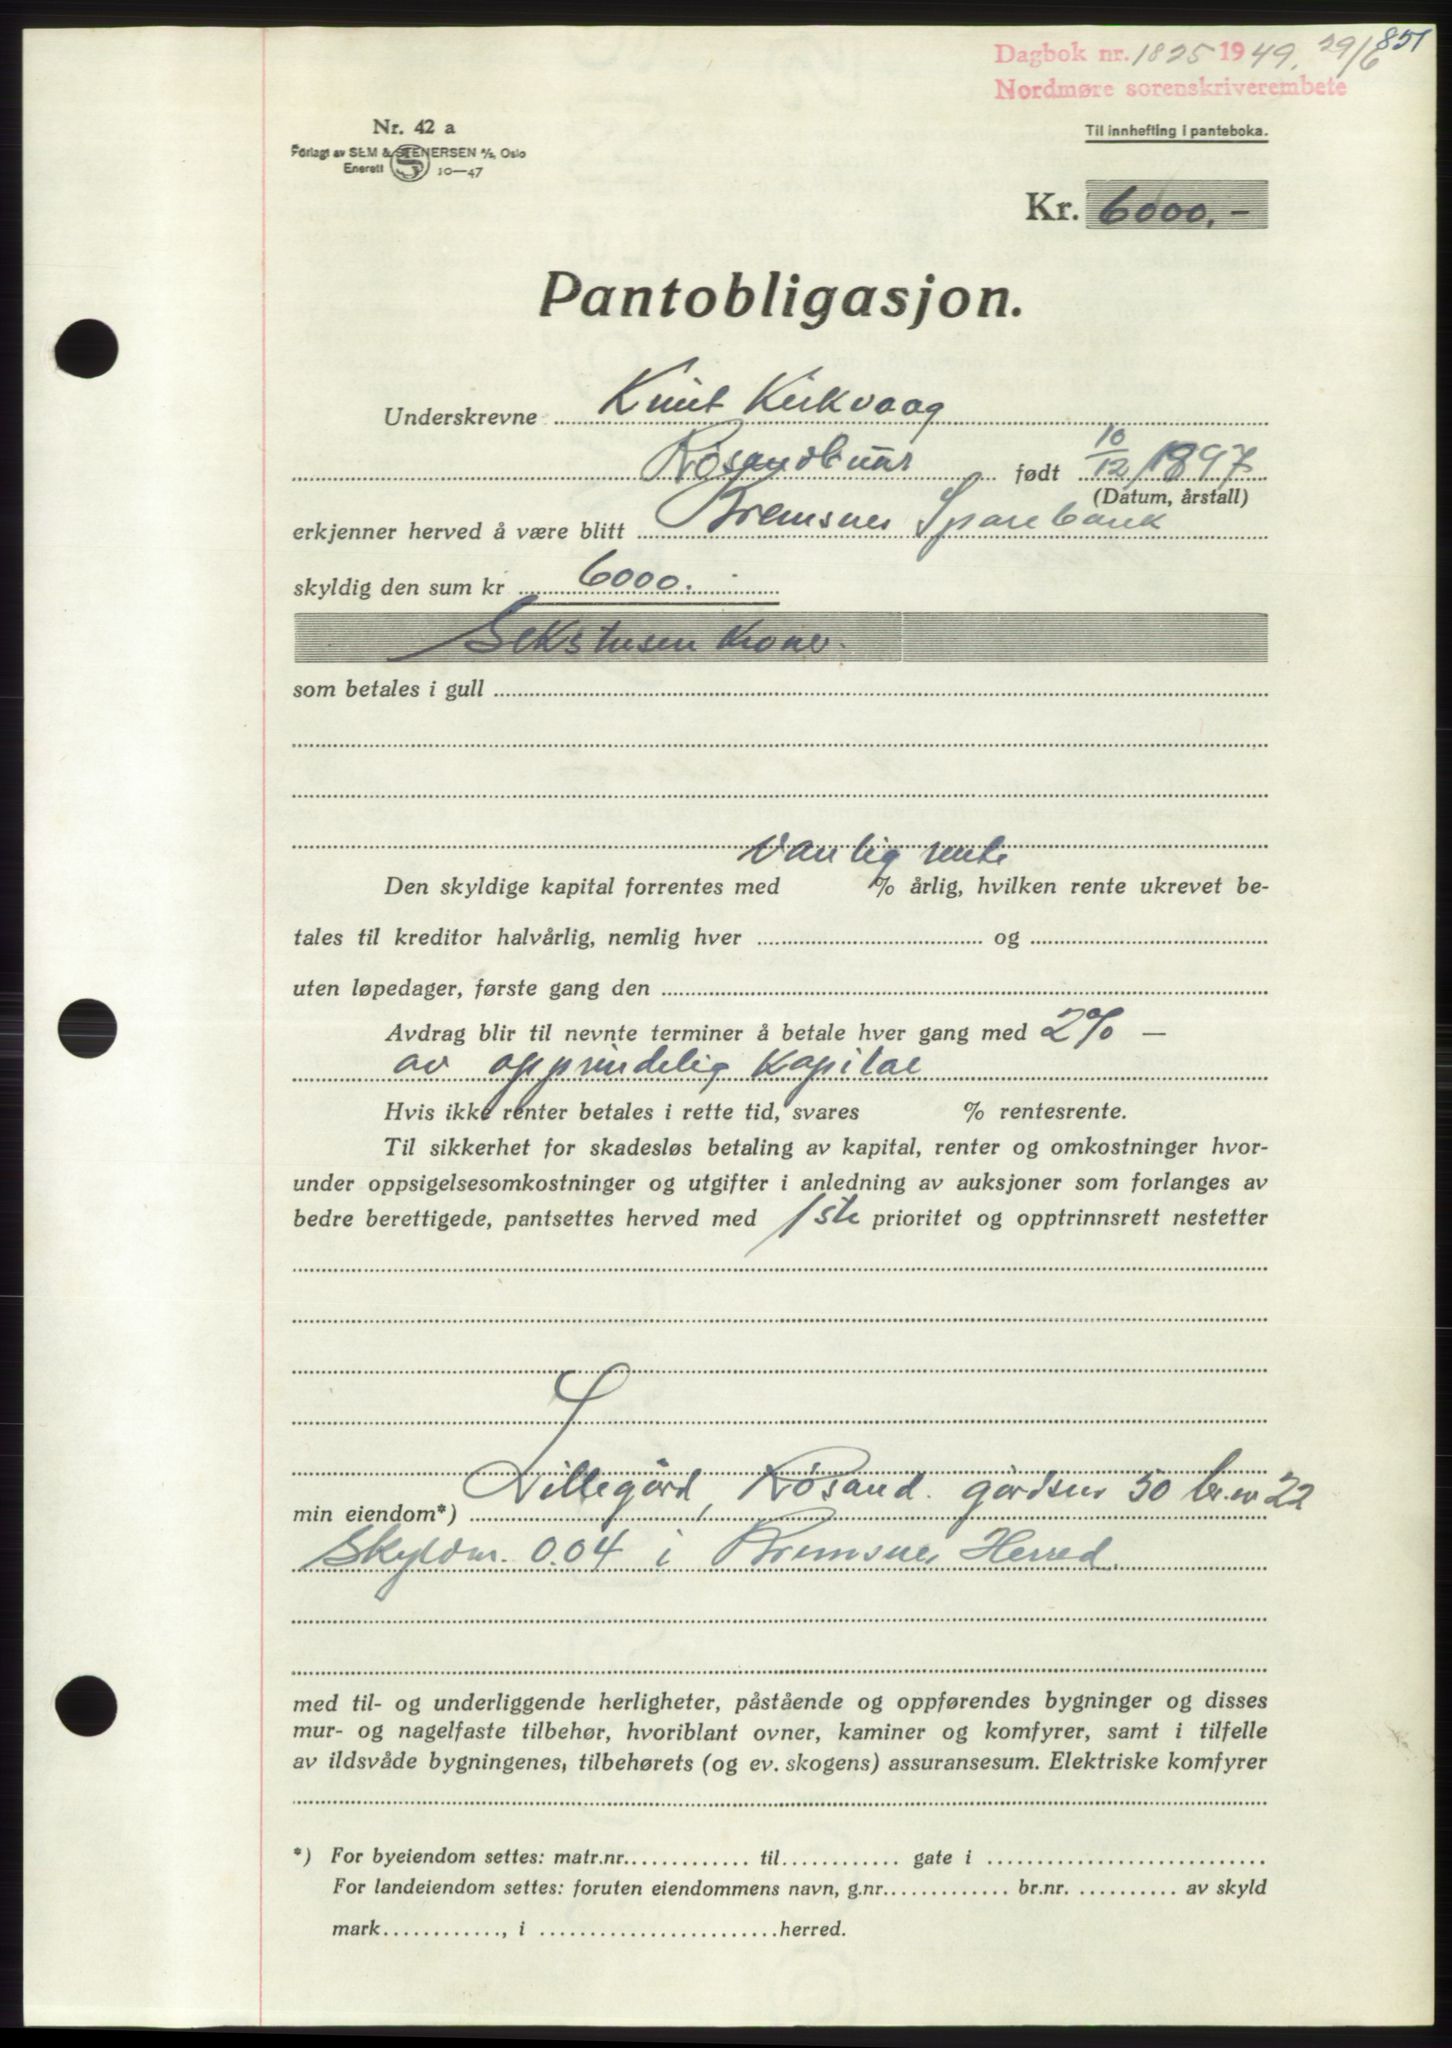 851
Dagbok nr. 1825 1949. 29/6
Nordmøre sorenskriverembete
Nr. 42 a
Til innhefting i panteboka.
Forlagt av SEM & STENERSEN A/S, Oslo
Enerett S 10—47
Kr. 6000.-
Pantobligasjon.
Underskrevne Knut Kirkvaag
Røsandbuar født 10/12 1897
(Datum, årstall)
erkjenner herved å være blitt Bremsnes Sparebank
skyldig den sum kr 6000.-
Sekstusen Kroner.
som betales i gull
Vanlig rente
Den skyldige kapital forrentes med % årlig, hvilken rente ukrevet be-
tales til kreditor halvårlig, nemlig hver og
uten løpedager, første gang den
Avdrag blir til nevnte terminer å betale hver gang med 2% —
av opprindelig Kapital
Hvis ikke renter betales i rette tid, svares % rentesrente.
Til sikkerhet for skadesløs betaling av kapital, renter og omkostninger hvor-
under oppsigelsesomkostninger og utgifter i anledning av auksjoner som forlanges av
bedre berettigede, pantsettes herved med 1ste prioritet og opptrinnsrett nestetter
min eiendom*) Lillegård, Røsand. gårdsnr 50 br.nr 22
Skyldm. 0.04 i Bremsnes Herred.
med til- og underliggende herligheter, påstående og oppførendes bygninger og disses
mur- og nagelfaste tilbehør, hvoriblant ovner, kaminer og komfyrer, samt i tilfelle
av ildsvåde bygningenes, tilbehørets (og ev. skogens) assuransesum. Elektriske komfyrer
*) For byeiendom settes: matr.nr............. til............ gate i ............................
For landeiendom settes: foruten eiendommens navn, g.nr............. br.nr. .......... av skyld
mark............, i ........................herred.